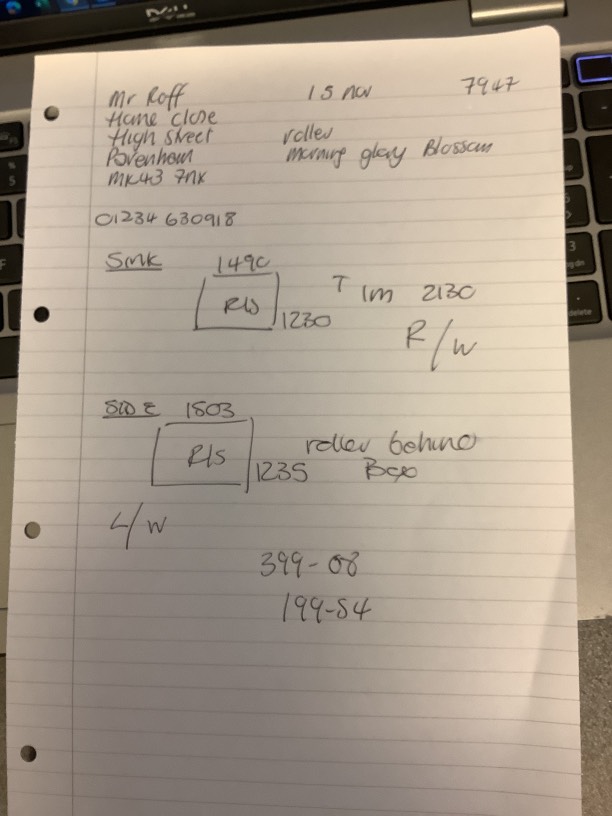 Mr Roff 15 nov 7947
Hame close
High street roller
Pavenham morning glory Blossom
MK43 7NK
01234 630918
SMK 1490
R/S 1230 T 1m 2130
R/W
SIDE 1503
R/S 1235 roller behind
Box
L/W
399-08
199-54